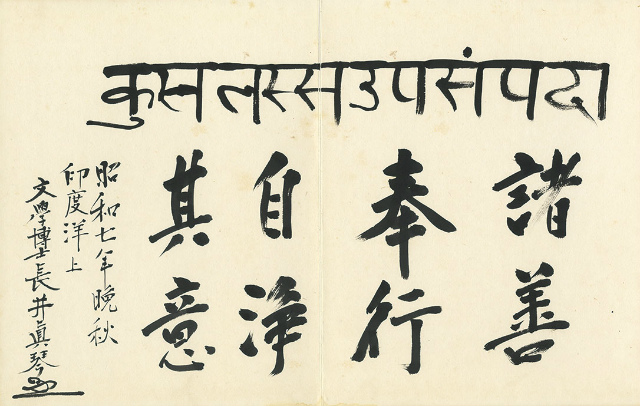 कुसलस्सउपसंपदा
諸善
奉行
自淨
其意
昭和七年晩秋
印度洋上
文學博士長井眞琴